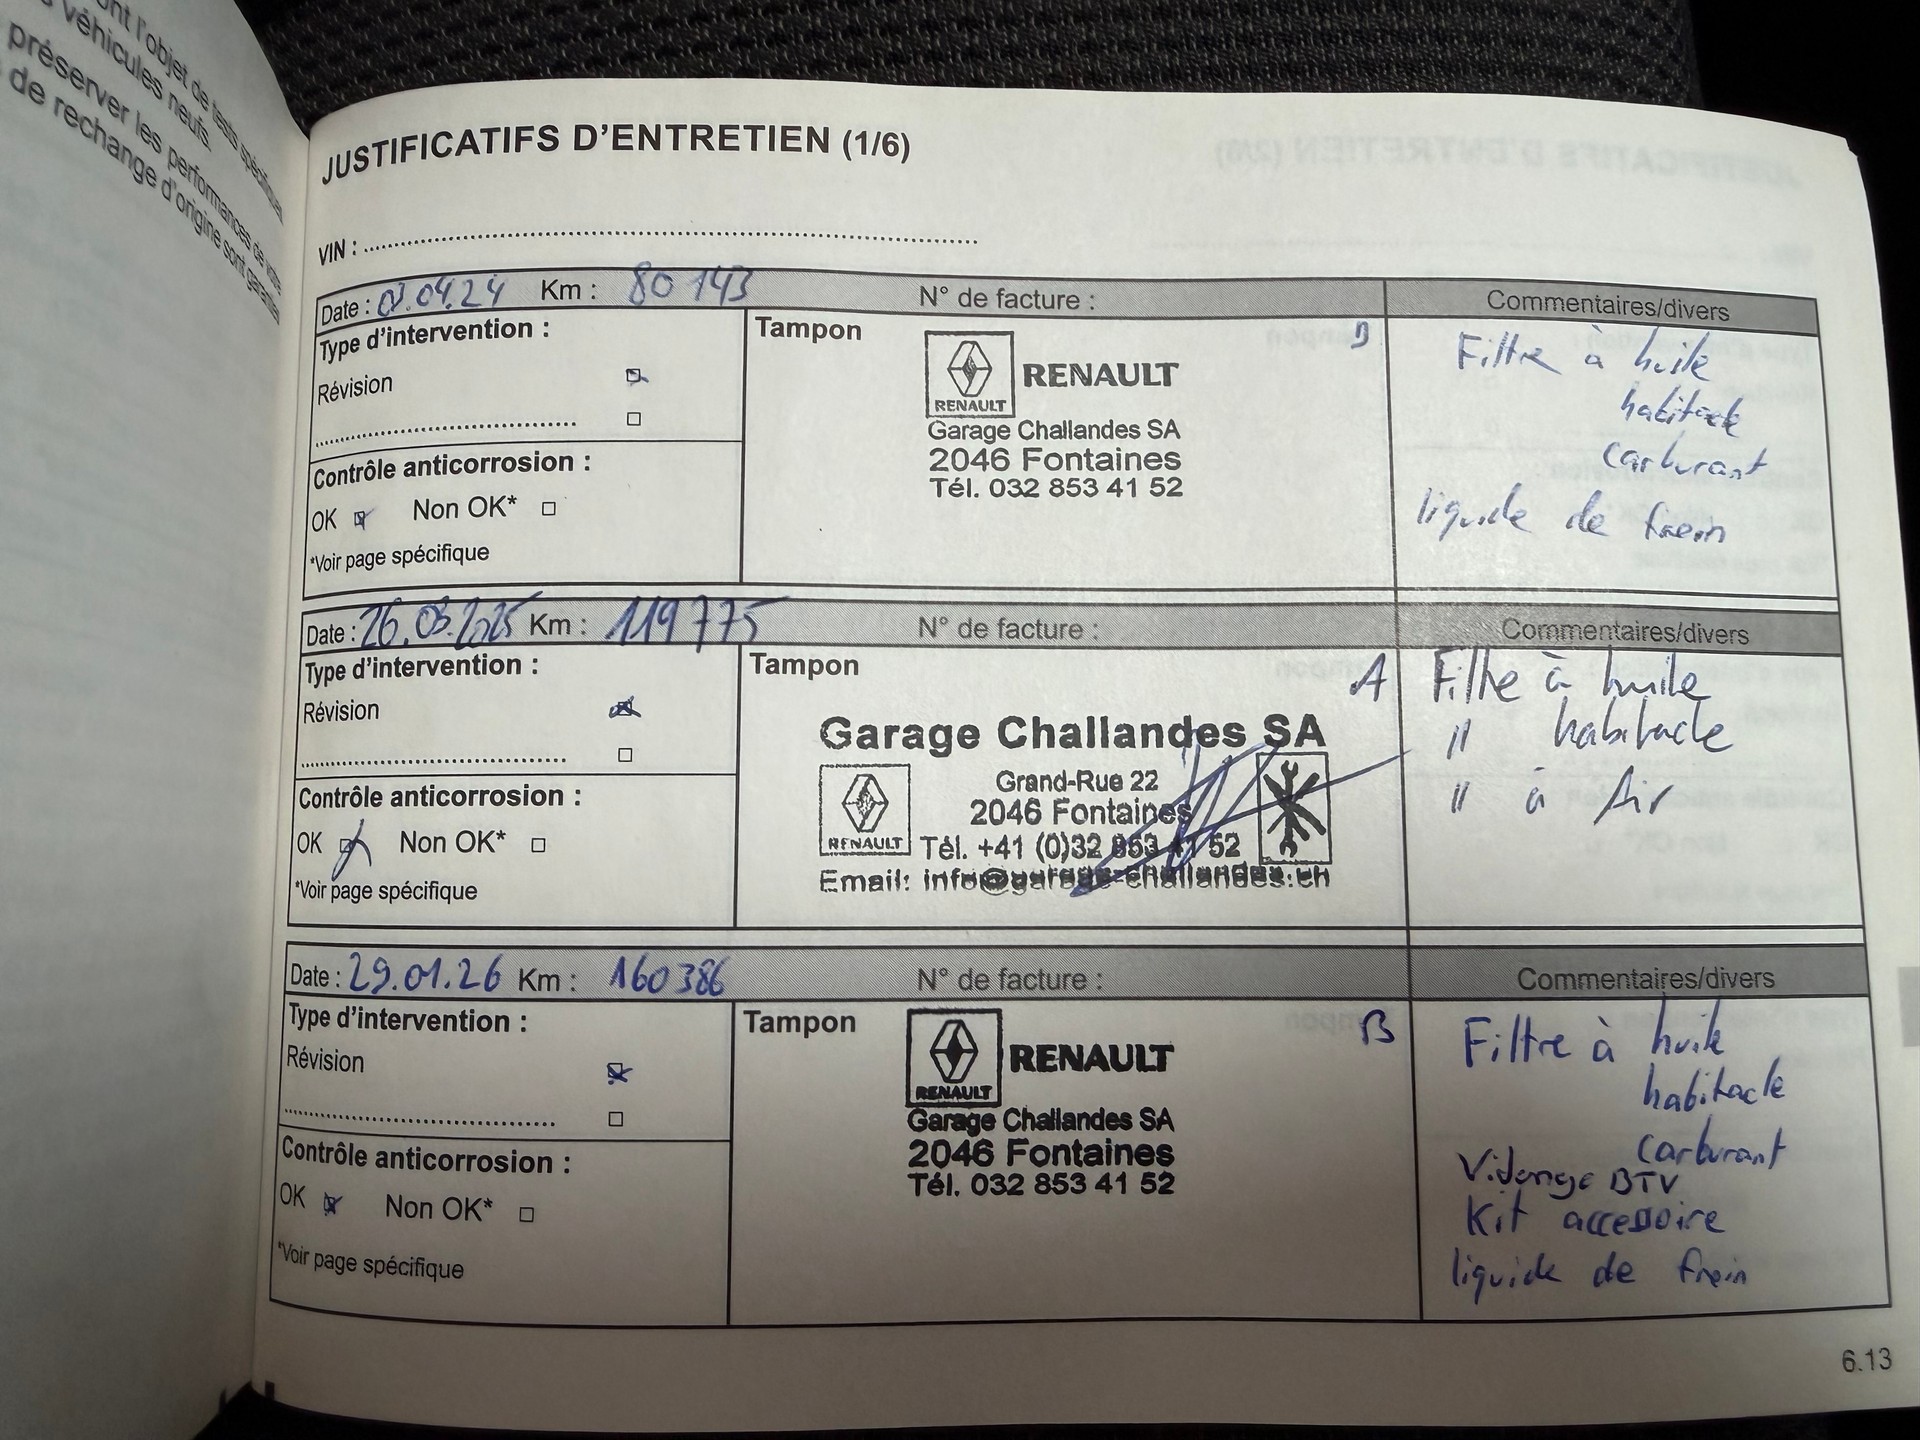 ont l'objet de tests spécifiques
véhicules neufs.
préserver les performances de votre
de rechange d'origine sont garanties
JUSTIFICATIFS D'ENTRETIEN (1/6)
VIN :
Date : 03.04.24 Km : 80 143 N° de facture : Commentaires/divers
Type d'intervention :
Révision
Contrôle anticorrosion :
OK Non OK*
*Voir page spécifique
Tampon
RENAULT
RENAULT
Garage Challandes SA
2046 Fontaines
Tél. 032 853 41 52
Filtre à huile
habitacle
carburant
liquide de frein
Date : 26.03.2025 Km : 119 775 N° de facture : Commentaires/divers
Type d'intervention :
Révision
Contrôle anticorrosion :
OK Non OK*
*Voir page spécifique
Tampon
A
Garage Challandes SA
Grand-Rue 22
2046 Fontaines
RENAULT
Tél. +41 (0)32 853 41 52
Email: info@garage-challandes.ch
Filtre à huile
" habitacle
" à Air
Date : 29.01.26 Km : 160 386 N° de facture : Commentaires/divers
Type d'intervention :
Révision
Contrôle anticorrosion :
OK Non OK*
*Voir page spécifique
Tampon
B
RENAULT
RENAULT
Garage Challandes SA
2046 Fontaines
Tél. 032 853 41 52
Filtre à huile
habitacle
carburant
Vidange BTV
Kit accessoire
liquide de frein
6.13